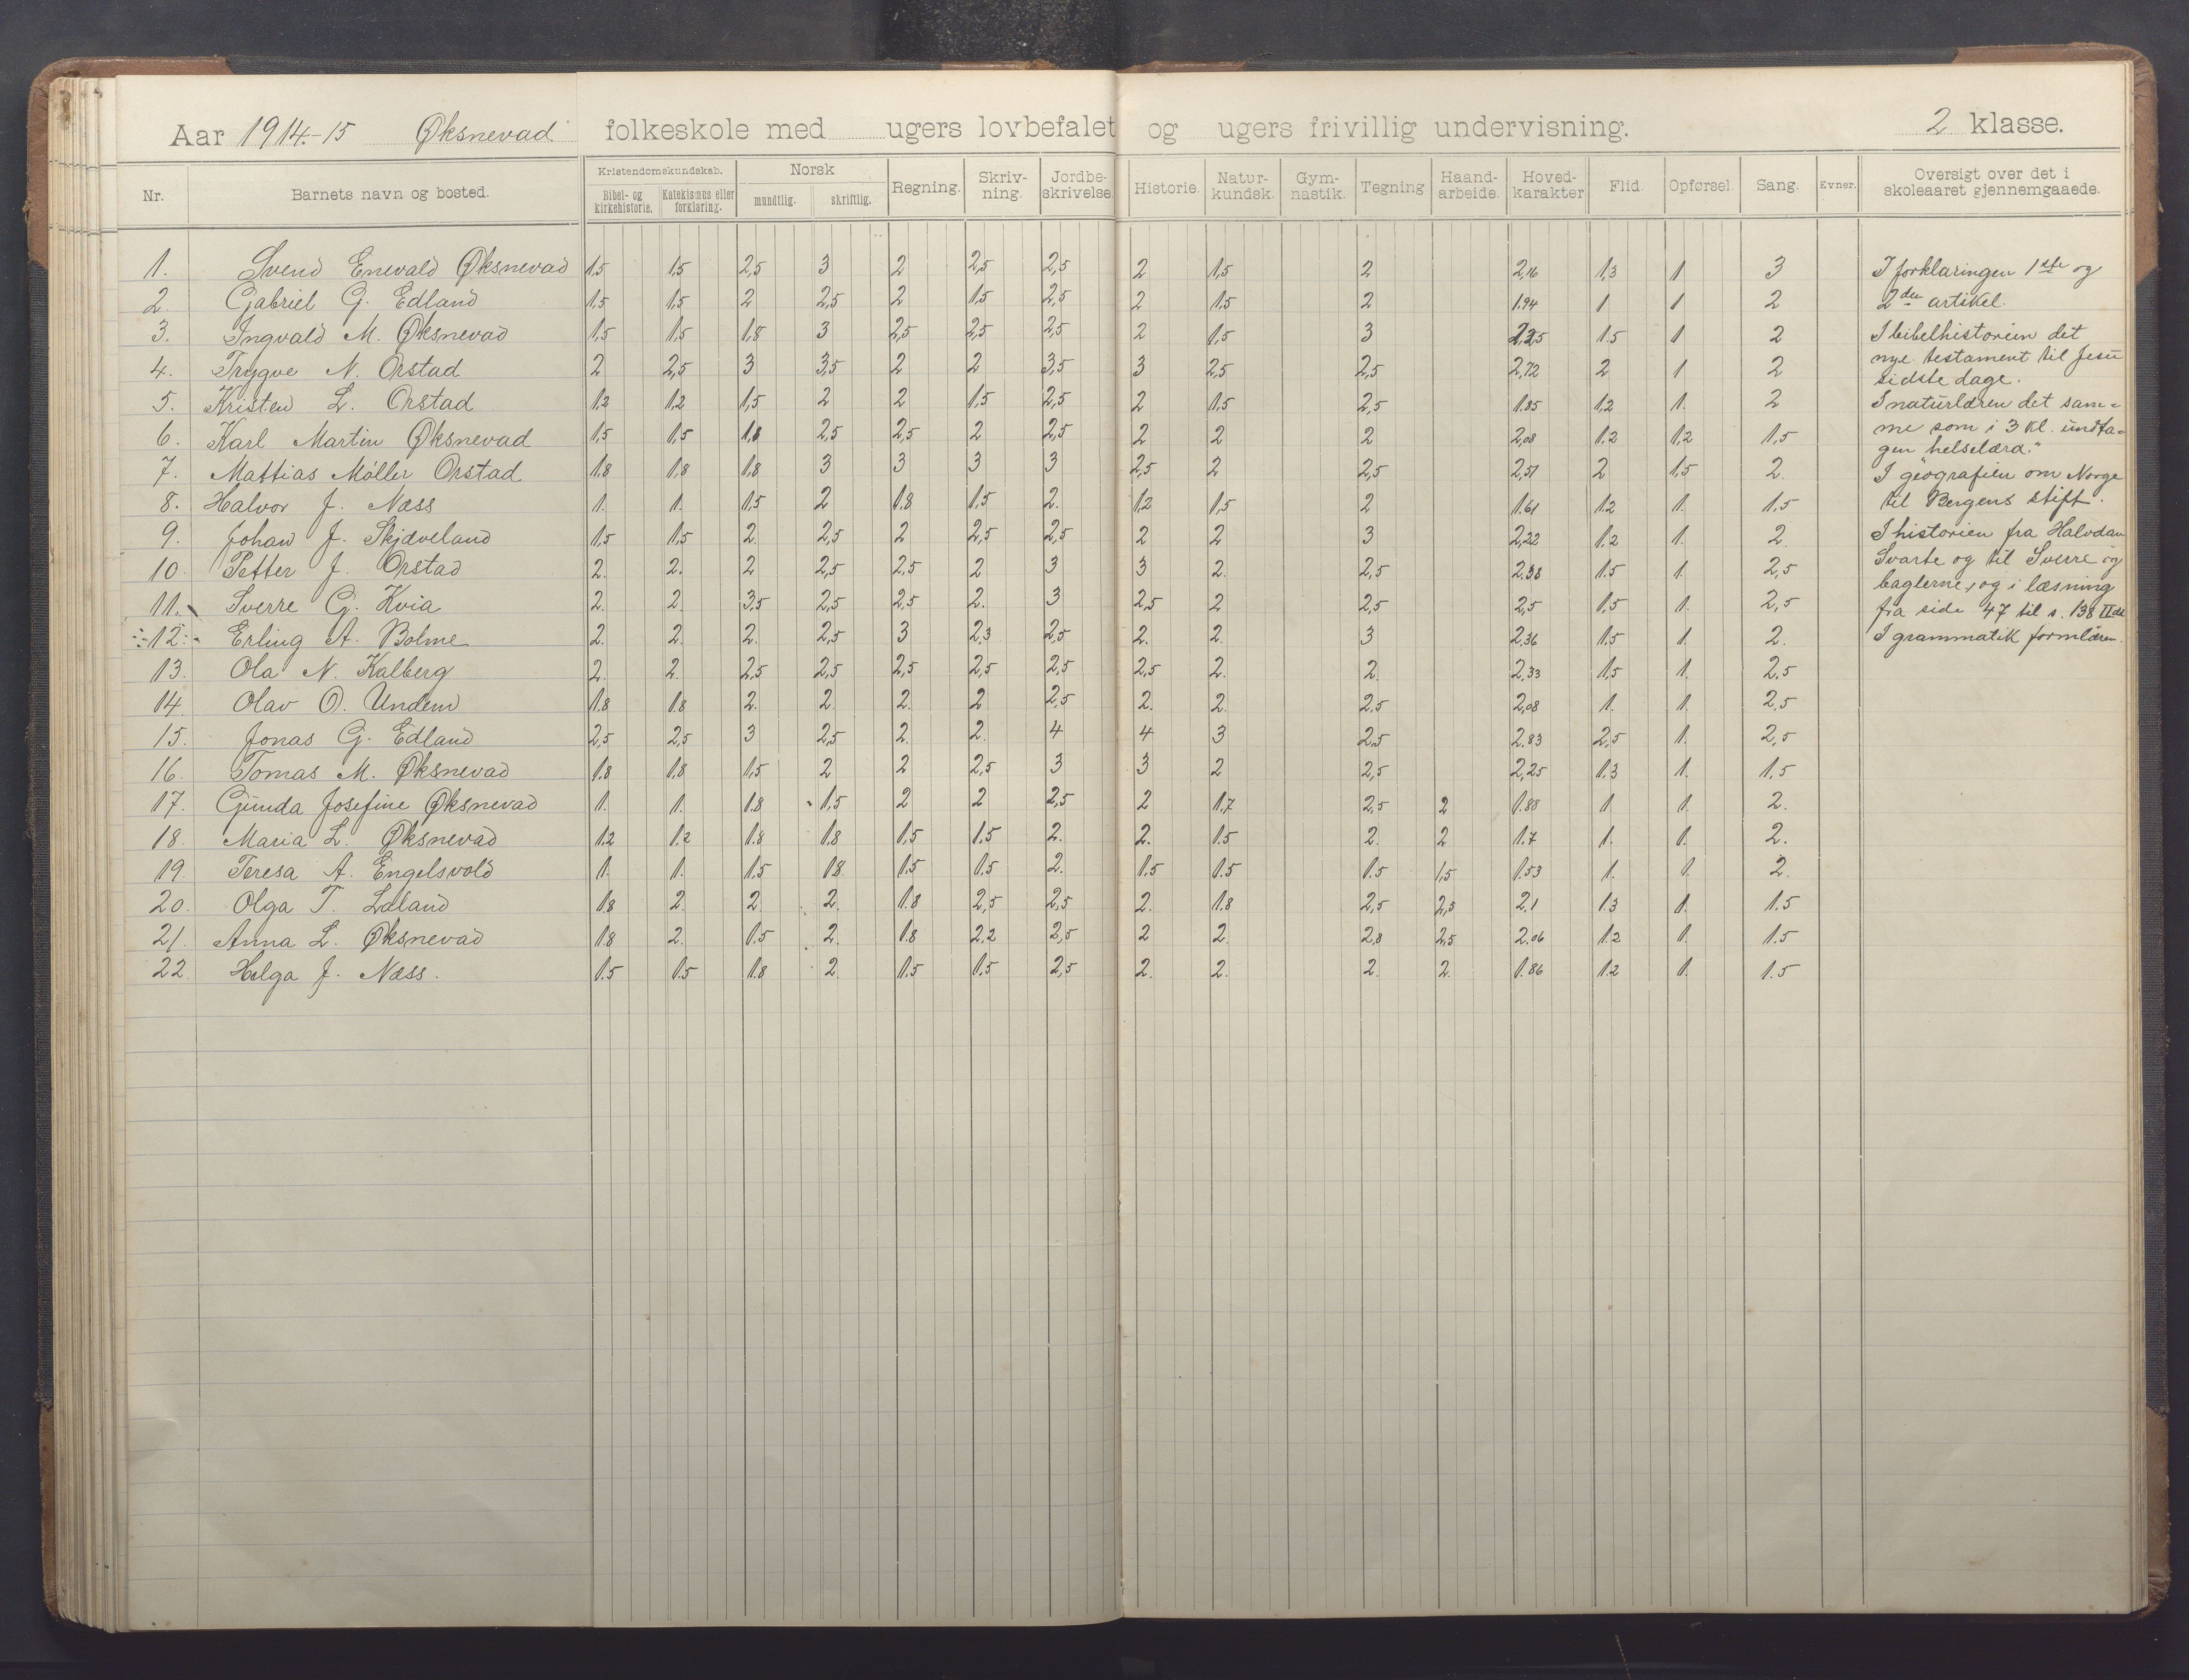 Aar 1914.-15 Øksnevad folkeskole med ugers lovbefalet og ugers frivillig undervisning. 2 klasse.
Nr. Barnets navn og bosted. Kristendomskundskab. Bibel- og kirkehistorie. Katekismus eller forklaring. Norsk mundtlig. skriftlig. Regning. Skriv-ning. Jordbe-skrivelse. Historie. Natur-kundsk. Gym-nastik. Tegning Haand-arbeide. Hoved-karakter Flid. Opførsel. Sang. Evner. Oversigt over det i skoleaaret gjennemgaaede.
1. Svend Enevald Øksnevad 1,5 1,5 2,5 3 2 2,5 2,5 2 1,5 2 2,16 1,3 1 3
2. Gabriel G. Edland 1,5 1,5 2 2,5 2 1,5 2,5 2 1,5 2 1.94 1 1 2
3. Ingvald M. Øksnevad 1,5 1,5 1,8 3 2,5 2,5 2,5 2 1,5 3 1.5 1 2
4. Trygve N. Orstad 2 2,5 3 3,5 2 2 3,5 3 2,5 2,5 2,72 2 1 2
5. Kristen L. Orstad 1,2 1,2 1,5 2 2 1,5 2,5 2 1,5 2,5 1.85 1,2 1. 2
6. Karl Martin Øksnevad 1,5 1,5 1,8 2,5 2,5 2 2,5 2 2 2 2,08 1.2 1,2 1,5
7. Mattias Møller Orstad 1.8 1.8 1.8 3 3 3 3 2,5 2 2,5 2,51 2 1.5 2.
8. Halvor J. Næss 1. 1. 1.5 2 1.8 1,5 2. 1,2 1,5 2 1.61 1.2 1. 1,5
9. Johan J. Skjæveland 1,5 1.5 2. 2,5 2 2,5 2,5 2 2 3 2,22 1.2 1. 2.
10. Petter J. Orstad 2. 2. 2 2,5 2,5 2 3 3 2. 2,5 2.38 1.5 1. 2,5
11. Sverre G. Kvia 2. 2. 3,5 2,5 2,5 2. 3 2,5 2 2,5 2,5 1,5 1. 2,5
12. Erling A. Bolme 2. 2. 2. 2,5 3 2,3 2,5 2. 2. 3 2.36 1.5 1. 2.
13. Ola N. Kalberg 2. 2. 2,5 2,5 2,5 2,5 2,5 2,5 2. 2. 2,33 1,5 1. 2,5
14. Olav O. Undem 1.8 1.8 2. 2. 2. 2 2,5 2. 2. 2.5 2,08 1. 1. 2,5
15. Jonas G. Edland 2,5 2,5 3 2,5 2. 2. 4 4 3 2,5 2.83 2,5 1. 2,5
16. Tomas M. Øksnevad 1.8 1,8 1,5 2 2 2,5 3 3 2 2,5 2,25 1.3 1. 1,5
17. Gunda Josefine Øksnevad 1. 1. 1.8 1,5 2 2 2,5 2 1.7 2,5 2 1.88 1 1. 2.
18. Maria L. Øksnevad 1.2 1.2 1.8 1.8 1,5 1,5 2. 2. 1.5 2. 2 1.7 1. 1. 2.
19. Teresa A. Engelsvold 1. 1. 1.5 1.8 1.5 1.5 2. 1.5 1.5 1.5 1,5 1.53 1. 1. 2.
20. Olga T. 1.8 2. 2 2. 1.8 2,5 2,5 2. 1.8 2,5 2,5 2.1 1.3 1. 1.5
21. Anna L. Øksnevad 1.8 2. 1.5 2. 1.8 2,2 2,5 2 2. 2,8 2,5 2.06 1.2 1. 1.5
22. Helga J. Næss. 1.5 1.5 1.8 2. 1,5 1,5 2,5 2. 2. 2. 2. 1.86 1.2 1. 1.5
I forklaringen 1ste og
2den artikel.
I bibelhistorien det
nye testament til Jesu
sidste dage.
I naturlæren det sam-
me som i 3 kl. undta-
gen "helselæra."
I geografien om Norge
til Bergens stift.
I historien fra Halvdan
Svarte og til Sverre og
baglerne, og i læsning
fra side 47 til s. 138 II del
I grammatik formlæren.